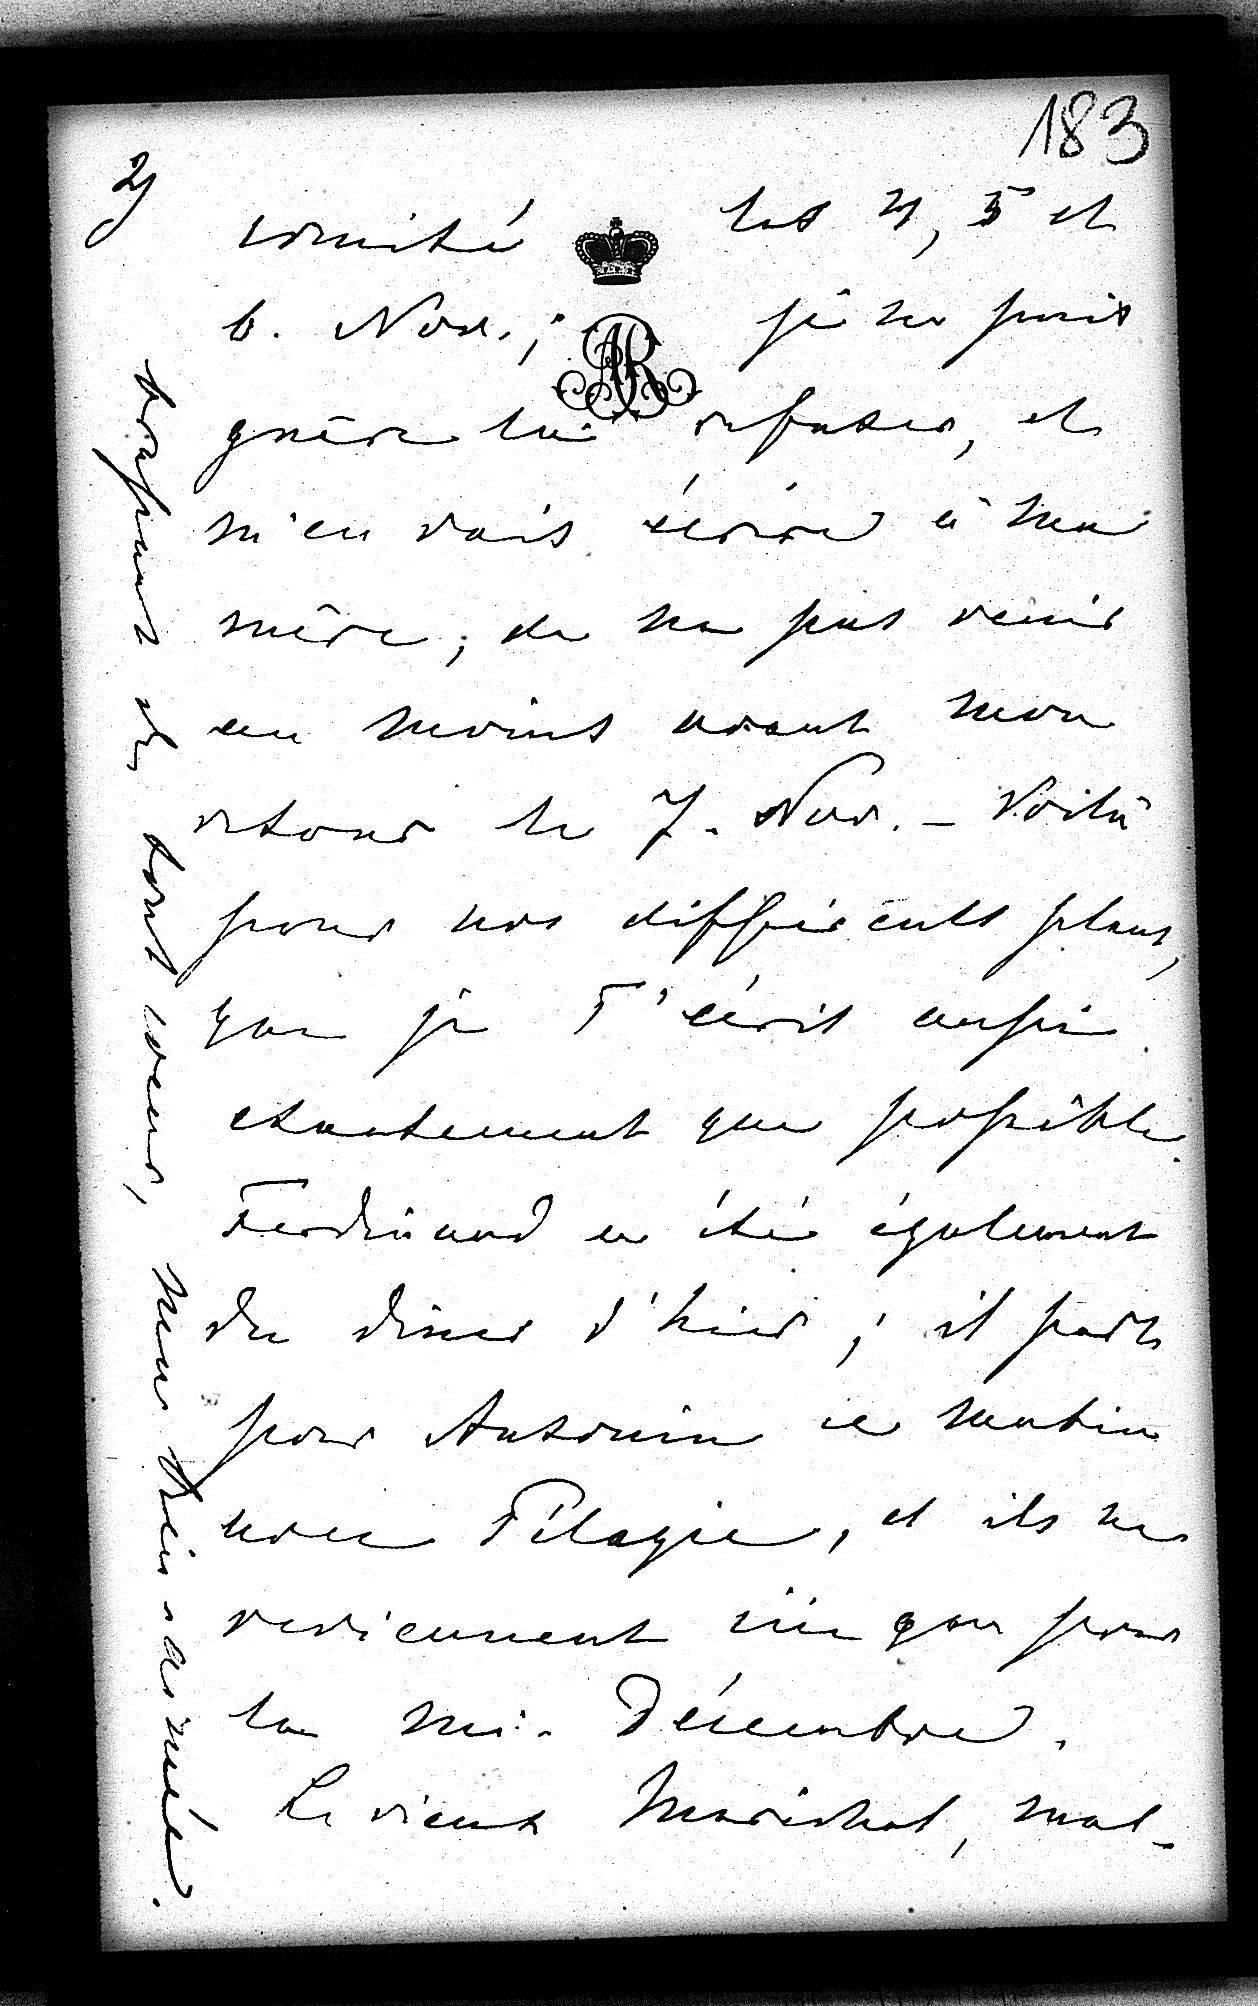 183
2)
comité les 4, 5 et
6. Nov.; je ne puis
guère lui refuser, et
m'en vais écrire à ma
mère, de ne pas venir
au moins avant mon
retour le 7. Nov. – Voilà
pour nos différents plans,
que je T'écris aussi
exactement que possible.
Ferdinand a été également
du diner d'hier; il part
pour Antonin ce matin
avec Pélagie, et ils ne
reviennent ici que pour
la mi-Décembre.
Le vieux Maréchal, mal-
de tout coeur, mon bien-aimée.